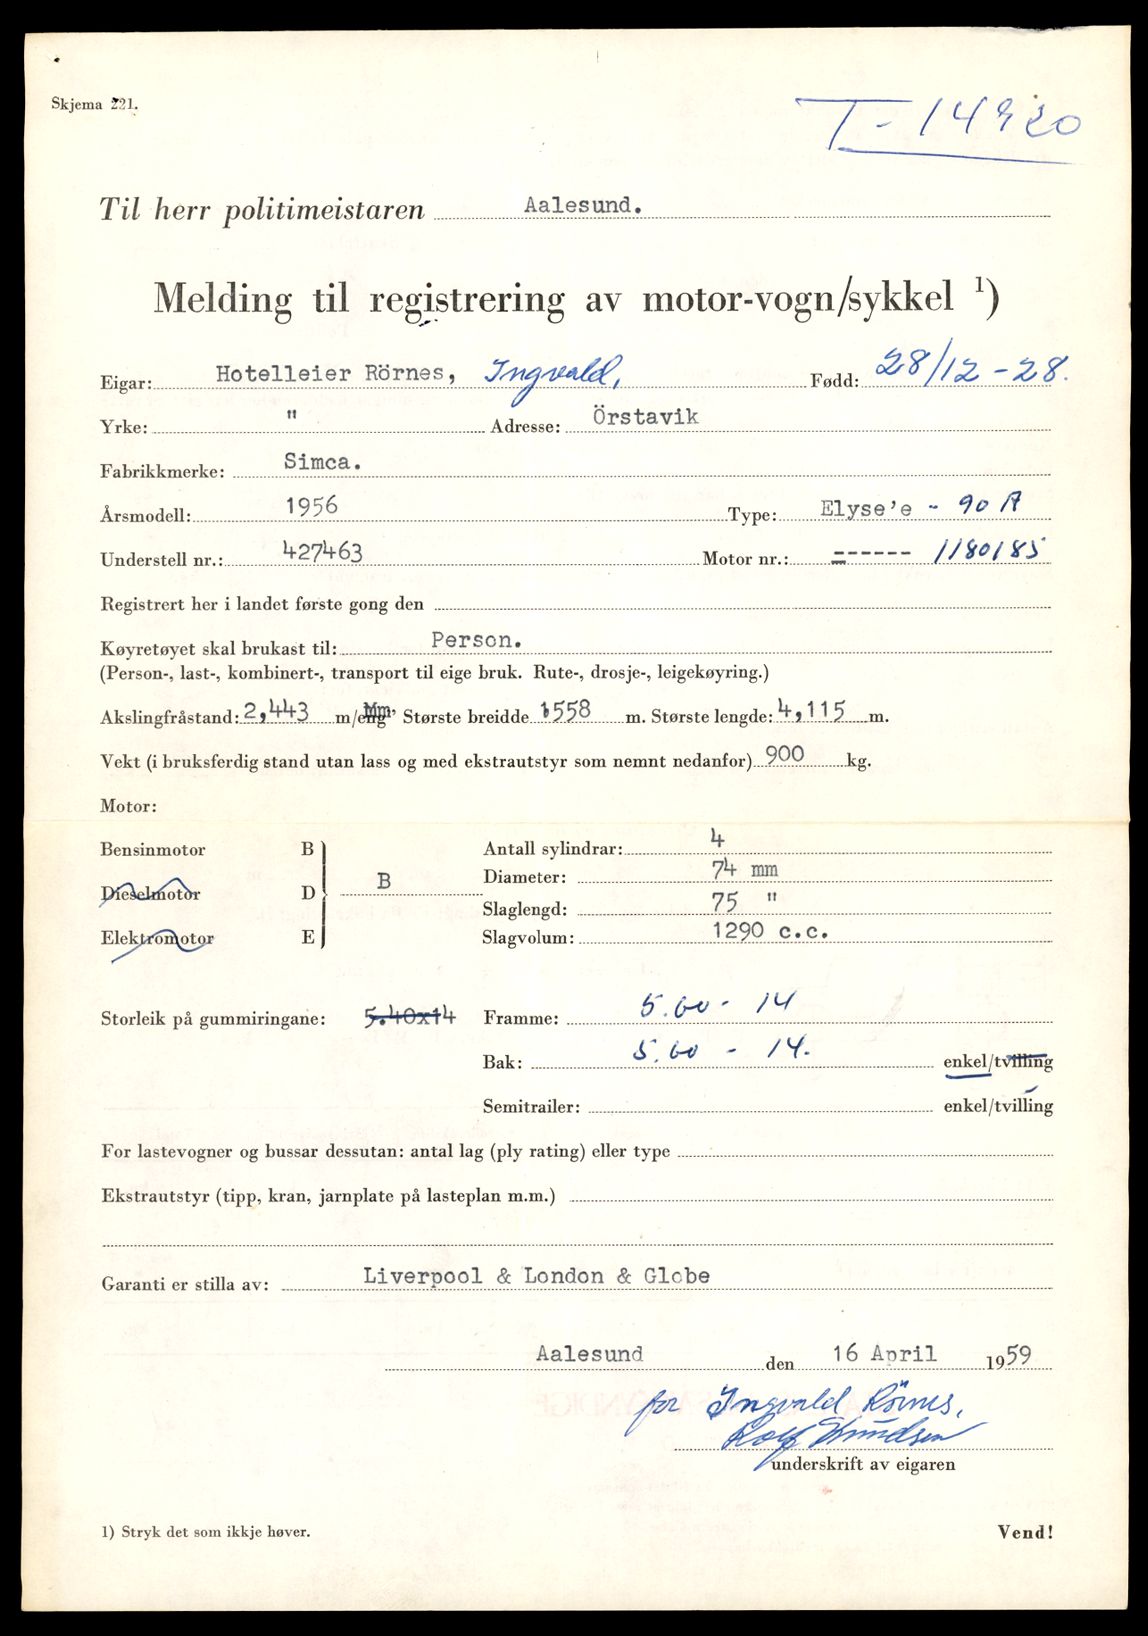 Skjema 221.
T-14920
Til herr politimeistaren Aalesund.
Melding til registrering av motor-vogn/sykkel 1)
Eigar: Hotelleier Rörnes, Ingvald, Fødd: 28/12-28.
Yrke: " Adresse: Örstavik
Fabrikkmerke: Simca.
Årsmodell: 1956 Type: Elyse'e - 90 A
Understell nr.: 427463 Motor nr.: ------ 1180185
Registrert her i landet første gong den
Køyretøyet skal brukast til: Person.
(Person-, last-, kombinert-, transport til eige bruk. Rute-, drosje-, leigekøyring.)
Akslingfråstand: 2,443 m/eng Mm, Største breidde 1558 m. Største lengde: 4,115 m.
Vekt (i bruksferdig stand utan lass og med ekstrautstyr som nemnt nedanfor) 900 kg.
Motor:
Bensinmotor B Antall sylindrar: 4
Diameter: 74 mm
Dieselmotor D B
Slaglengd: 75 "
Elektromotor E Slagvolum: 1290 c.c.
Storleik på gummiringane: 5.40x14 Framme: 5.60 - 14
Bak: 5.60 - 14. enkel/tvilling
Semitrailer: enkel/tvilling
For lastevogner og bussar dessutan: antal lag (ply rating) eller type
Ekstrautstyr (tipp, kran, jarnplate på lasteplan m.m.)
Garanti er stilla av: Liverpool & London & Globe
Aalesund den 16 April 1959
for Ingvald Rörnes,
Rolf Knudsen
underskrift av eigaren
1) Stryk det som ikkje høver. Vend!